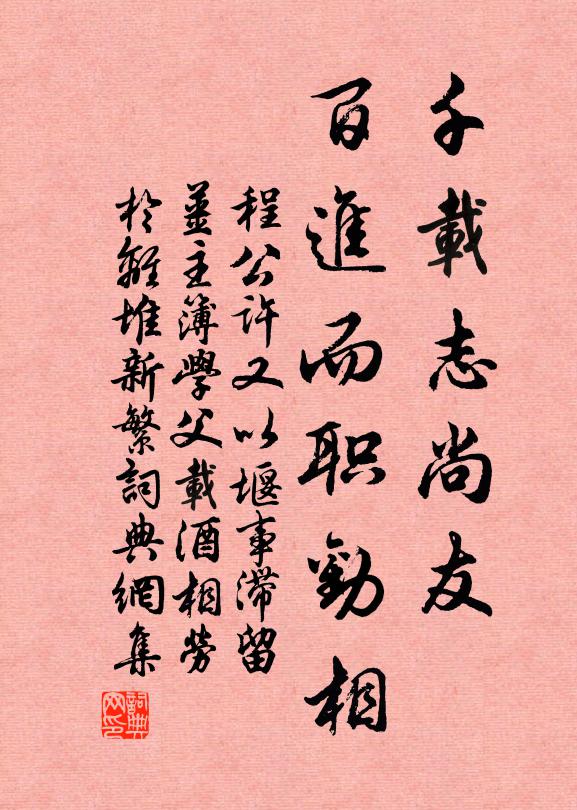 千載志尚友
百進而职勸相
程公許又以堰事滯留
薑主簿學父載酒相勞
於離堆新繁詞典網集
詞典网印